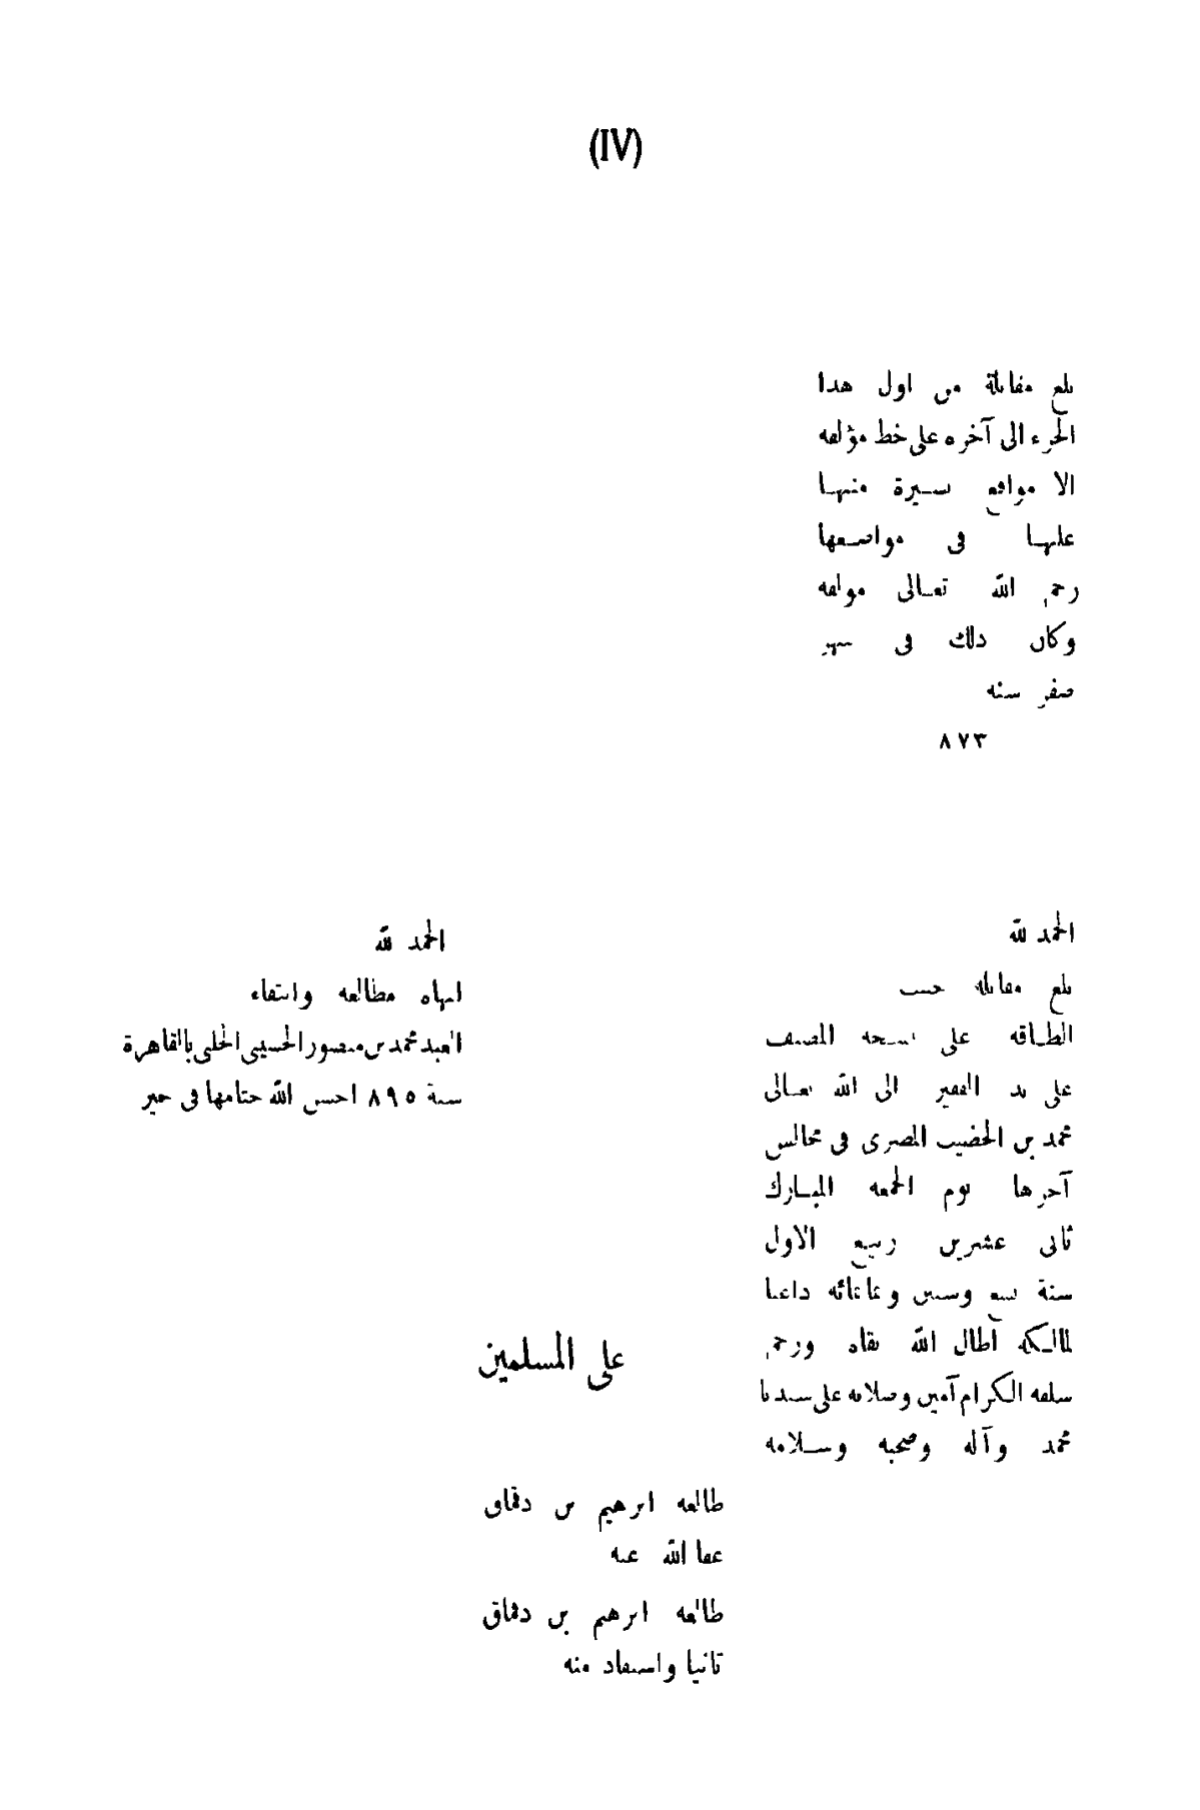 (IV)
ىلع مقاىلة من اول هدا
الحرء الى آخره على خط مؤلفه
الا مواقع ىسيرة منبها
عليها فى مواصعها
رحم الله تعالى مولفه
وكاں دلك فى سهر
صفر سنه
٨٧٣
الحمد لله
ىلع مقاىله حسب
الطاقه على ىسحه المصىف
على ىد الفقير الى الله ىعالى
محمد بن الخضيب المصرى فى محالس
آحرها ىوم الحمعه المبارك
ثانى عشرين ربيع الاول
سنة ىسع وسىىں وثمانمائه داعىا
لمالكه اطال الله ىقاه ورحم
سلفه الكرام آمين وصلاىه على سىدىا
محمد وآله وصحبه وسلامه
الحمد لله
اىهاه مطالعه واىىقاء
العبد محمد ىں مىصور الحسيىى الحلى بالقاهرة
سىة ٨٩٥ احسں الله حتامها فى حير
على المسلمين
طالعه اىرهيم ىں دقماق
عفا الله عىه
طالعه اىرهيم بں دقماق
ثانيا واسىفاد منه